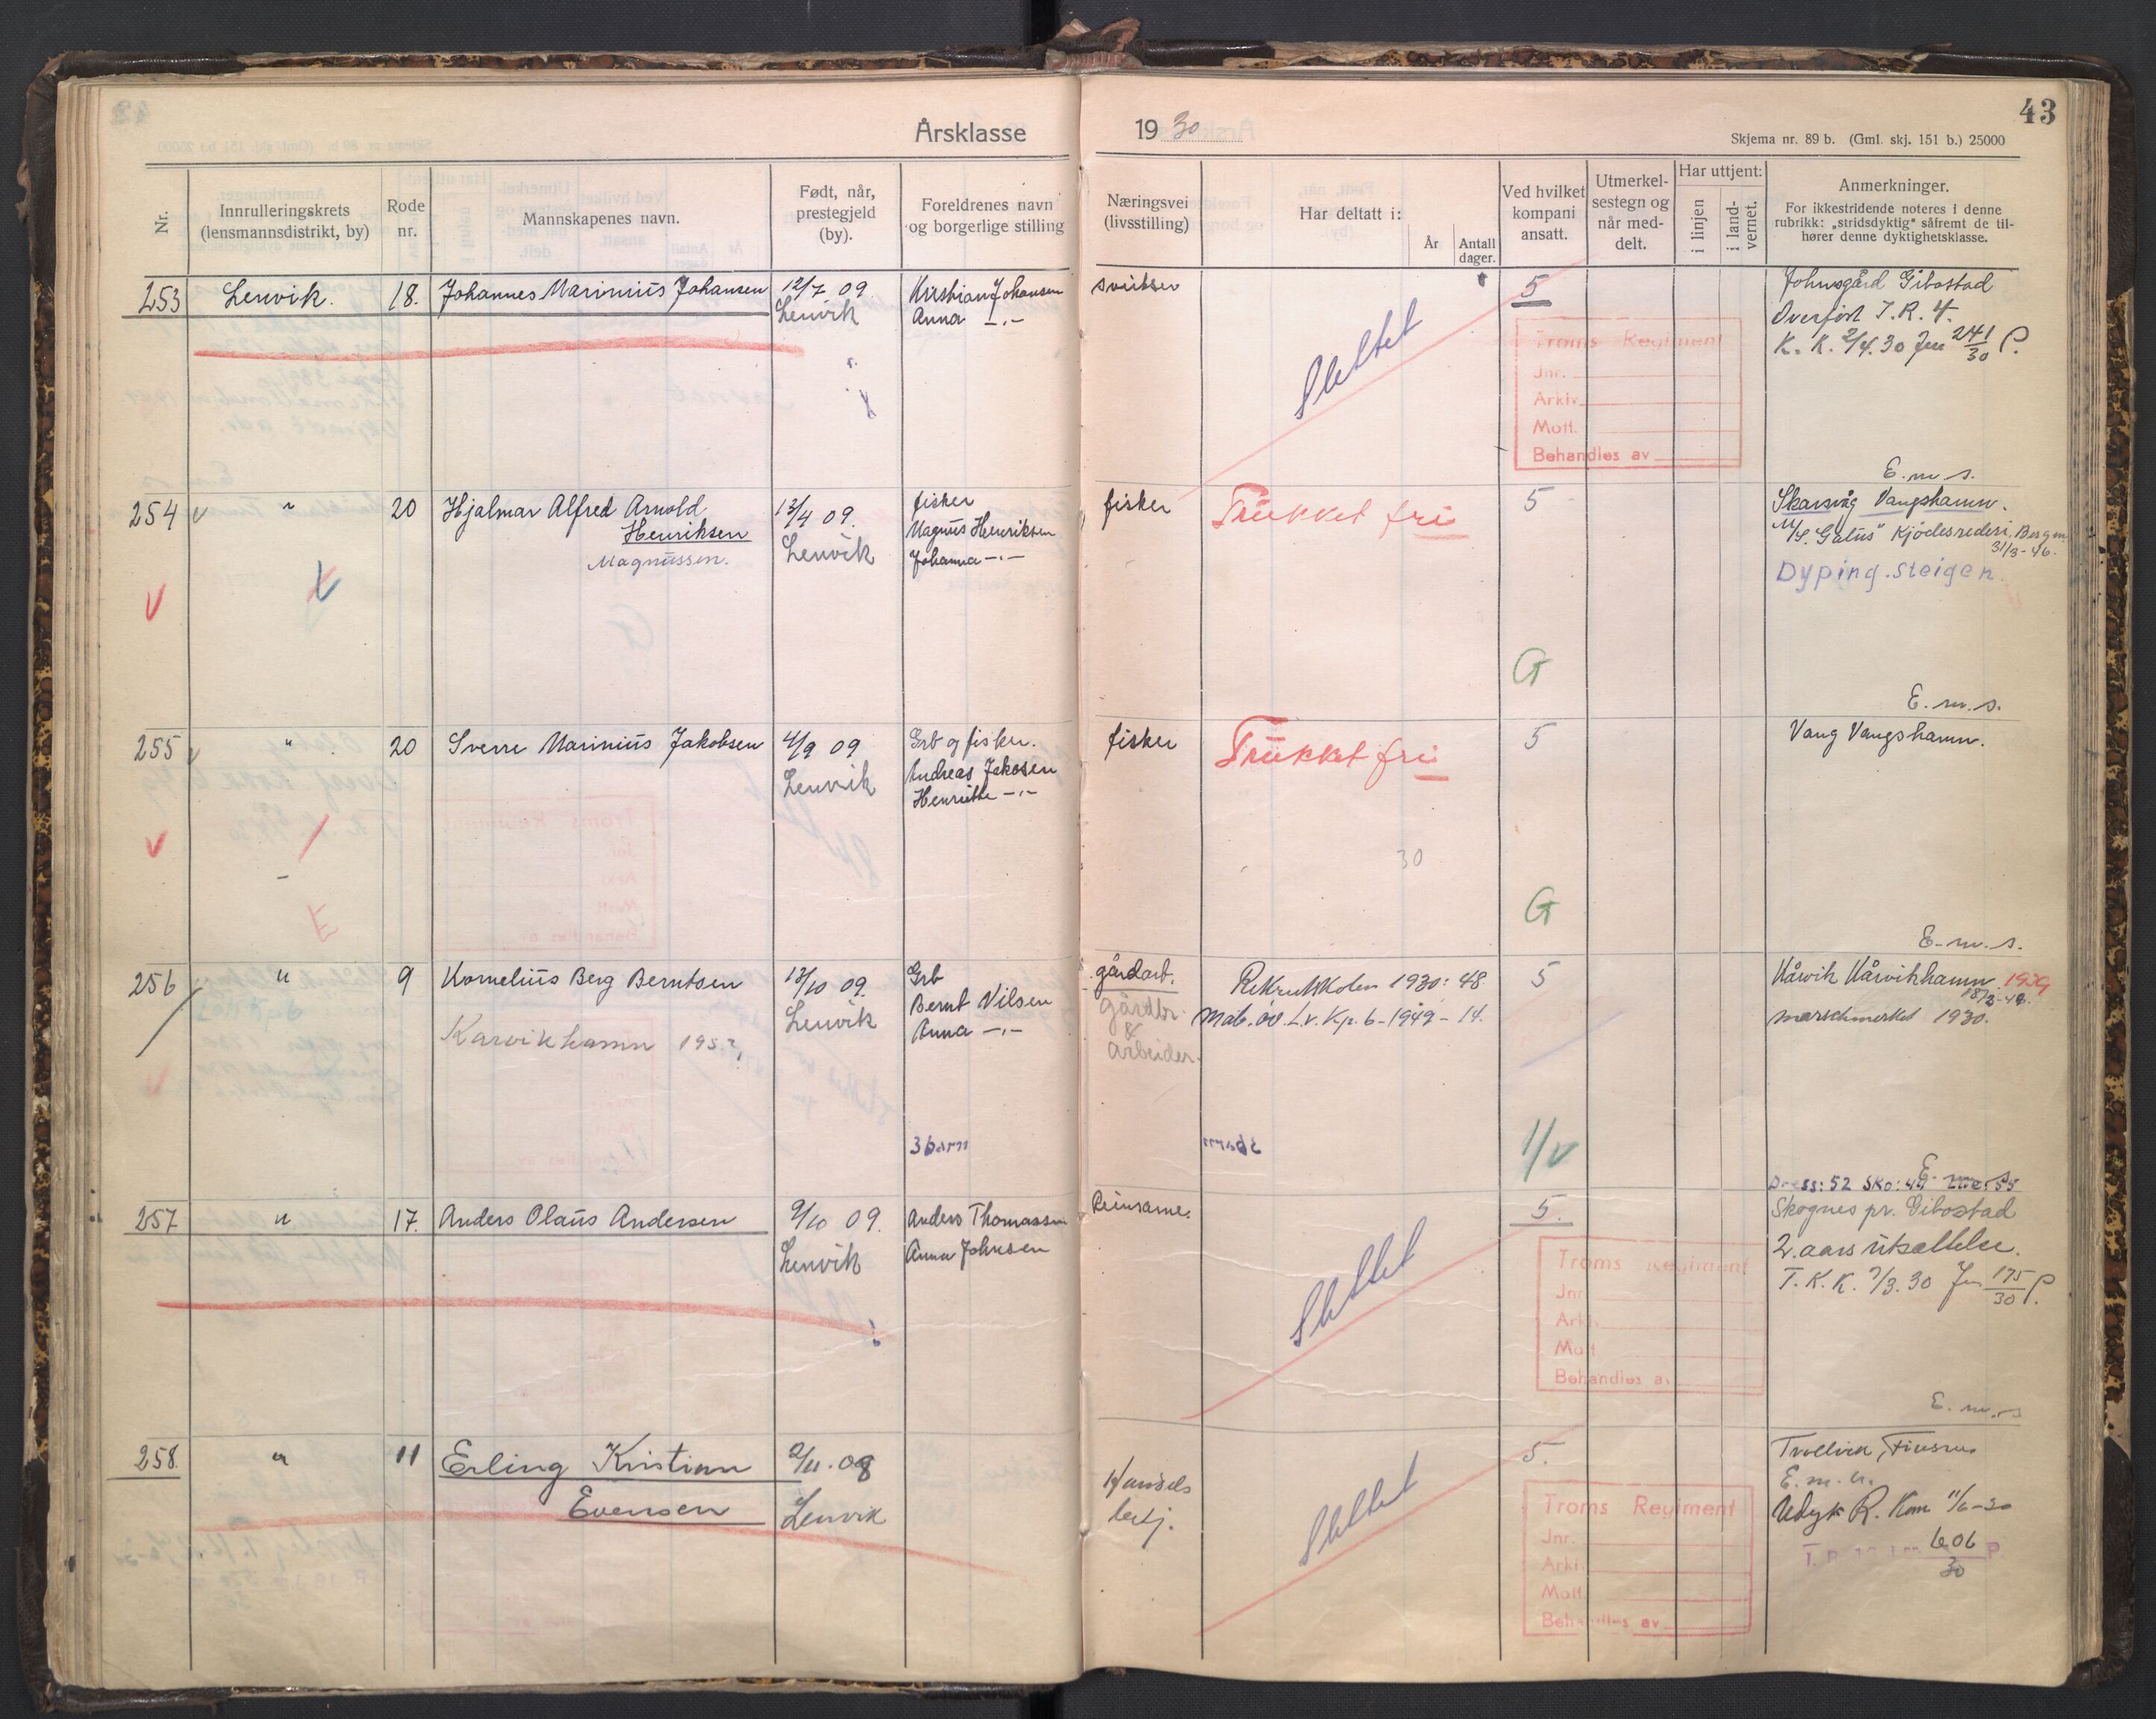 Årsklasse
1930
43
Skjema nr. 89 b. (Gml. skj. 151 b.) 25000
Nr.
Innrulleringskrets
(lensmannsdistrikt, by)
Rode
nr.
Mannskapenes navn.
Født, når,
prestegjeld
(by).
Foreldrenes navn
og borgerlige stilling
Næringsvei
(livsstilling)
Har deltatt i:
År
Antall
dager.
Ved hvilket
kompani
ansatt.
Utmerkel-
sestegn og
når med-
delt.
Har uttjent:
i linjen
i land-
vernet.
Anmerkninger.
For ikkestridende noteres i denne
rubrikk: „stridsdyktig“ såfremt de til-
hører denne dyktighetsklasse.
253 Lenvik. 18. Johannes Marinius Johansen 12/7 09.
Lenvik
Kristian Johansen
Anna -"-
Slettet
5
Troms Regiment
Jnr.
Arkiv
Mott.
Behandles av
Johnsgård Gibostad
Overført I.R. 4.
K. K. 2/4.30 Jnr 241/30 P.
E.m.s.
254 v " 20 Hjalmar Alfred Arnold
Henriksen
Magnussen.
13/4 09.
Lenvik
fisker
Magnus Henriksen
Johanna -"-
fisker
Trukket fri
5
G
Skarsvåg Vangshamn.
M/S. "Galus" Kjødesrederi, Bergen
31/3-46.
Dyping. Steigen
E.m.s.
255 v " 20 Sverre Marinius Jakobsen 4/9 09
Lenvik
Grb og fisker.
Andreas Jakosen
Henriette -"-
fisker
Trukket fri
30
5
G
E
Vang Vangshamn.
E.m.s.
256 " 9 Kornelius Berg Berntsen 13/10 09.
Lenvik
Karvikhamn 195?
Grb
Bernt Nilsen
Anna -"-
3 barn
gårdarb.
gårdbr.
&
arbeider.
Rekrutskolen 1930: 48
Mob. øv. L.v. Kp. 6-1949-14.
5
1/V
Kårvik Kårvikhamn. 1939
18/3-49.
marschmerket 1930.
E.m.s.
Dress: 52 Sko: 44
257 " 17. Anders Olaus Andersen 9/10 09.
Lenvik
Anders Thomassen
Anna Johnsen
Reinsame.
Slettet
5.
Troms Regiment
Jnr
Ark
Mot
Behandles av
Skognes pr. Gibostad
2. aars utsættelse.
T. K. K. 7/3. 30 Jnr 175/30 P.
E.m.s
258. " 11 Erling Kristian
Evensen
2/11.08
Lenvik
Handels
betj.
Slettet
5.
Troms Regiment
Jnr.
Arki
Mott
Behandles av
E.m.u.
Udyk R. Kom 11/6-30
606
30